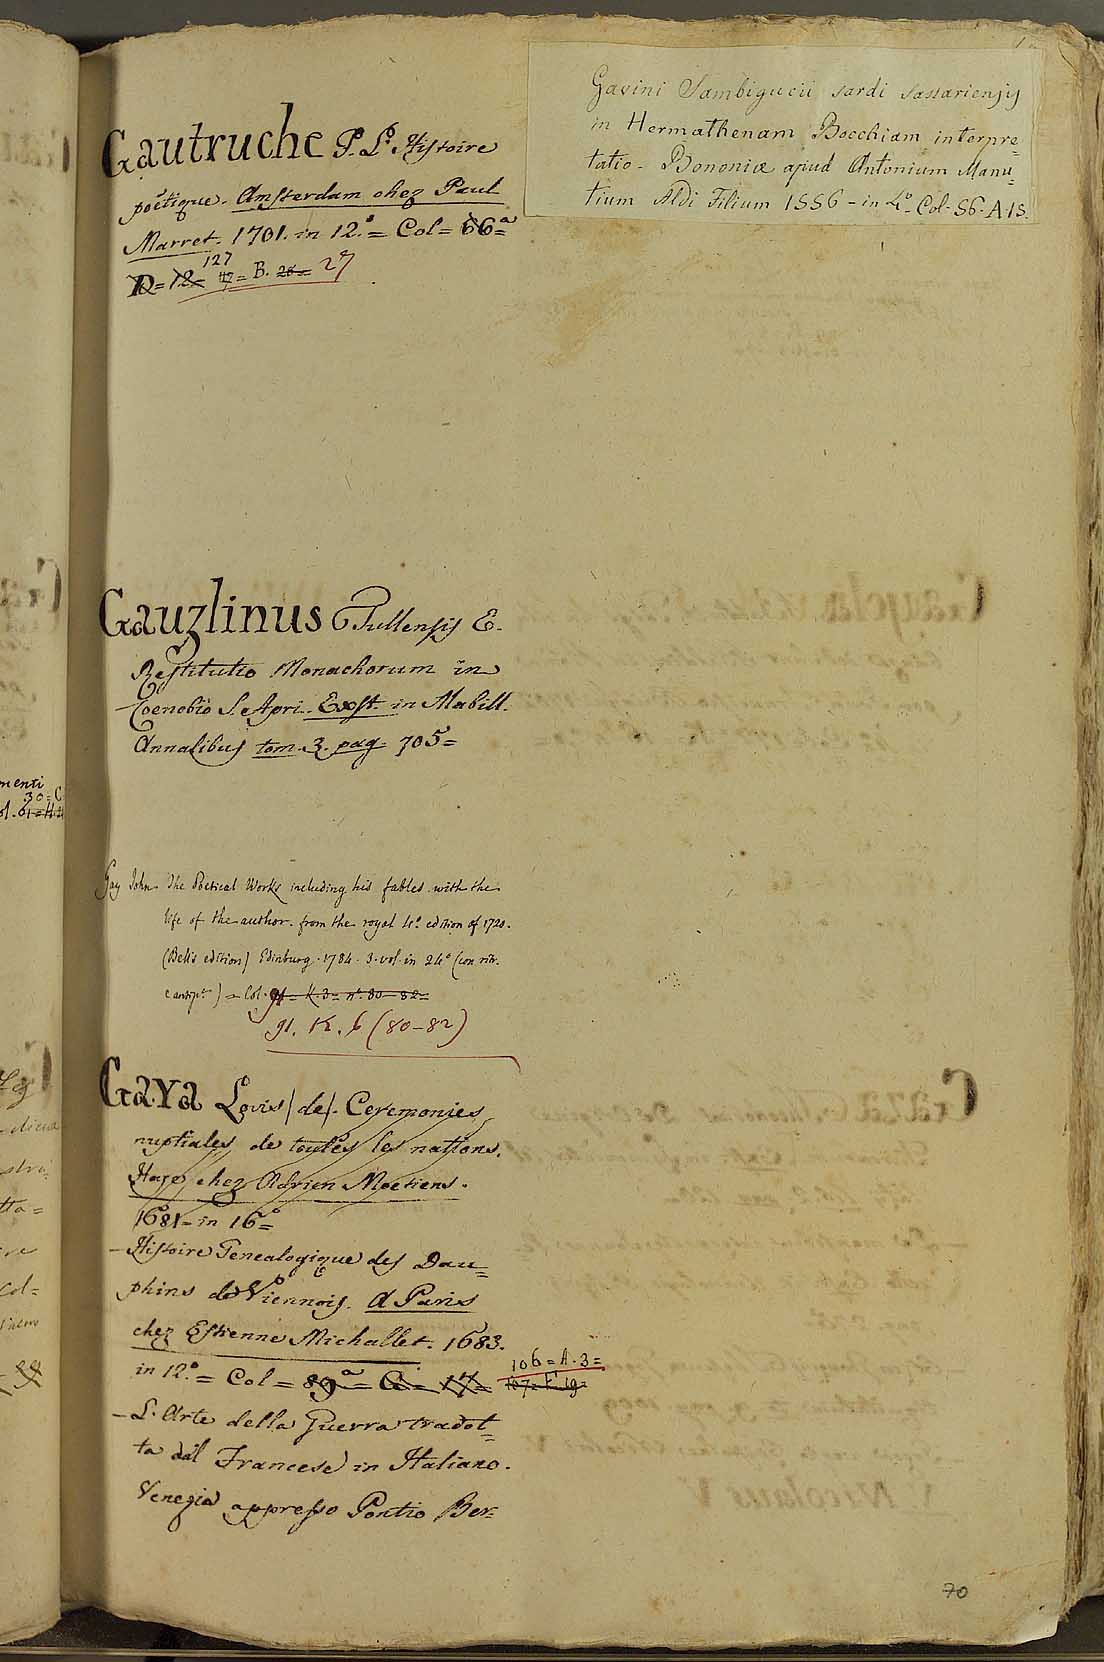 Gavini Sambigucii sardi sassariensis
in Hermathenam Bocchiam interpre=
tatio - Bononiæ apud Antonium Manu=
tium Aldi Filium 1556 - in 4.º Col. 56. A. 15.
Gautruche P. L. Histoire
poëtique. Amsterdam chez Paul
Marret. 1701. in 12.º = Col = 66ª =
127
R = 12 = 47 = B. 26 = 27
Gauzlinus Tullensis E.
Restitutio Monachorum in
Coenobio S. Apri. Exst. in Mabill.
Annalibus tom. 3. pag. 705 =
Gay John. The Poetical Works including his fables with the
life of the author. from the royal 4º edition of 1720.
(Bell's edition) Edinburg. 1784. 3. vol. in 24º (con ritr.
e antip.) = Col. 91 = K. 3 = nº 80 - 82 =
91. K. 6 (80-82)
Gaya Lovis (de). Ceremonies
nuptiales de toutes les nations.
Haye chez Adrien Moetiens.
1681 - in 16º =
- Histoire Genealogique des Dau=
phins de Viennois. A Paris
chez Estienne Michallet. 1683.
in 12.º = Col = 89ª = = 17 =
106 = A. 3 =
- L'Arte della Guerra tradot=
ta dal Francese in Italiano.
Venezia appresso Pontio Ber=
70
menti
30 = C